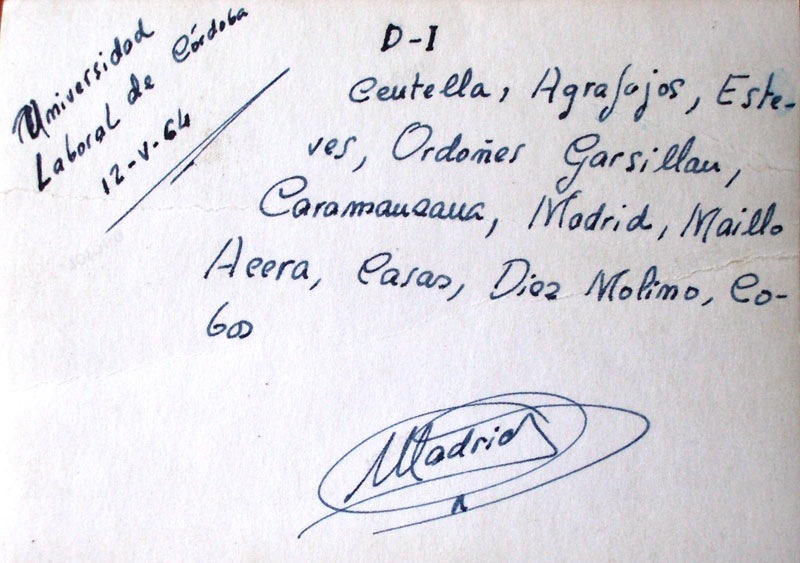 Universidad
Laboral de Córdoba
12-V-64
D-I
Centella, Agrafojos, Este-
ves, Ordoñes Garsillan,
Caramanzana, Madrid, Maillo
Acera, Casas, Diez Molino, Co-
bos
Madrid